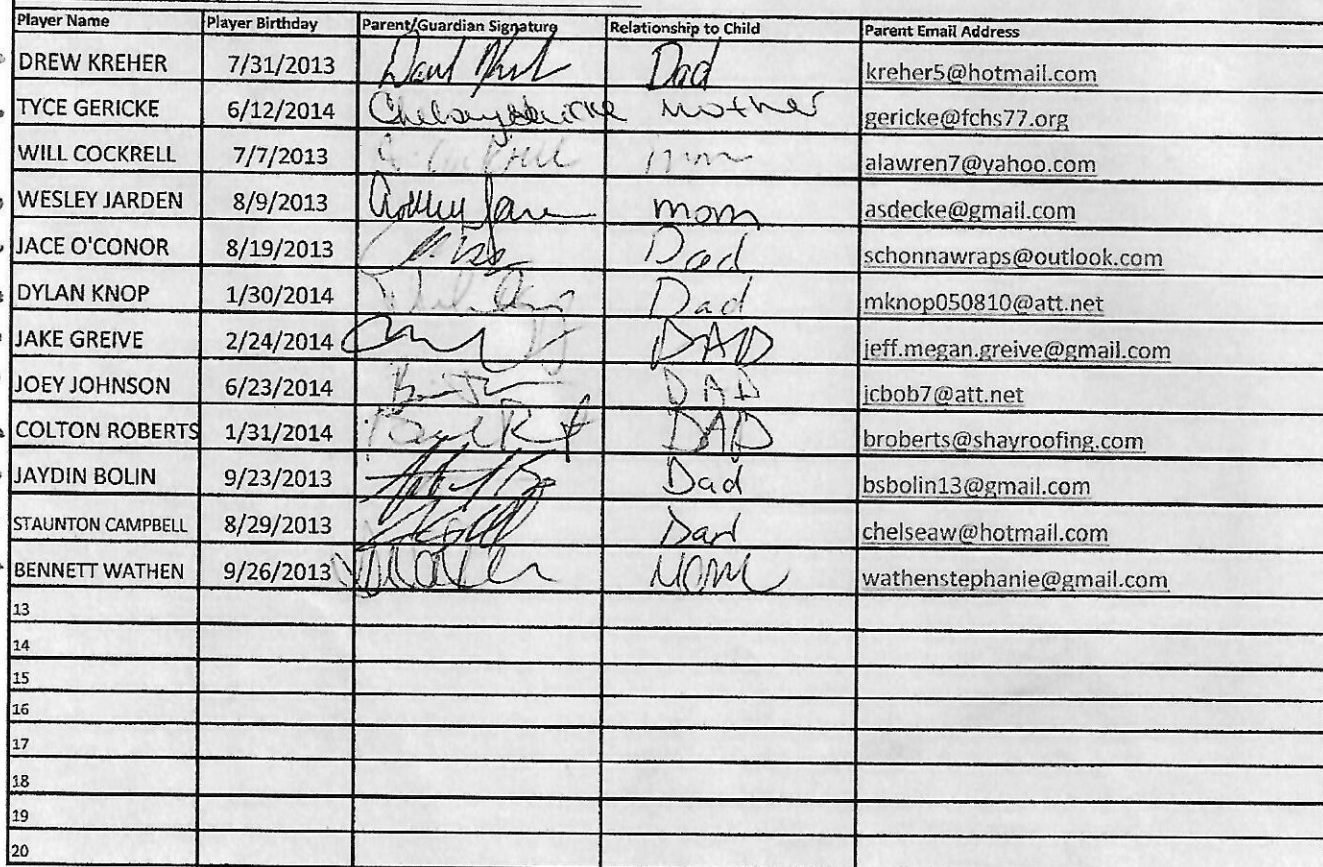 Player Name Player Birthday Parent/Guardian Signature Relationship to Child Parent Email Address
DREW KREHER 7/31/2013 Dad kreher5@hotmail.com
TYCE GERICKE 6/12/2014 Chelsey Gericke Mother gericke@fchs77.org
WILL COCKRELL 7/7/2013 Cockrell mom alawren7@yahoo.com
WESLEY JARDEN 8/9/2013 mom asdecke@gmail.com
JACE O'CONOR 8/19/2013 Dad schonnawraps@outlook.com
DYLAN KNOP 1/30/2014 Dad mknop050810@att.net
JAKE GREIVE 2/24/2014 DAD jeff.megan.greive@gmail.com
JOEY JOHNSON 6/23/2014 DAD jcbob7@att.net
COLTON ROBERTS 1/31/2014 DAD broberts@shayroofing.com
JAYDIN BOLIN 9/23/2013 Dad bsbolin13@gmail.com
STAUNTON CAMPBELL 8/29/2013 Dad chelseaw@hotmail.com
BENNETT WATHEN 9/26/2013 MOM wathenstephanie@gmail.com
13
14
15
16
17
18
19
20